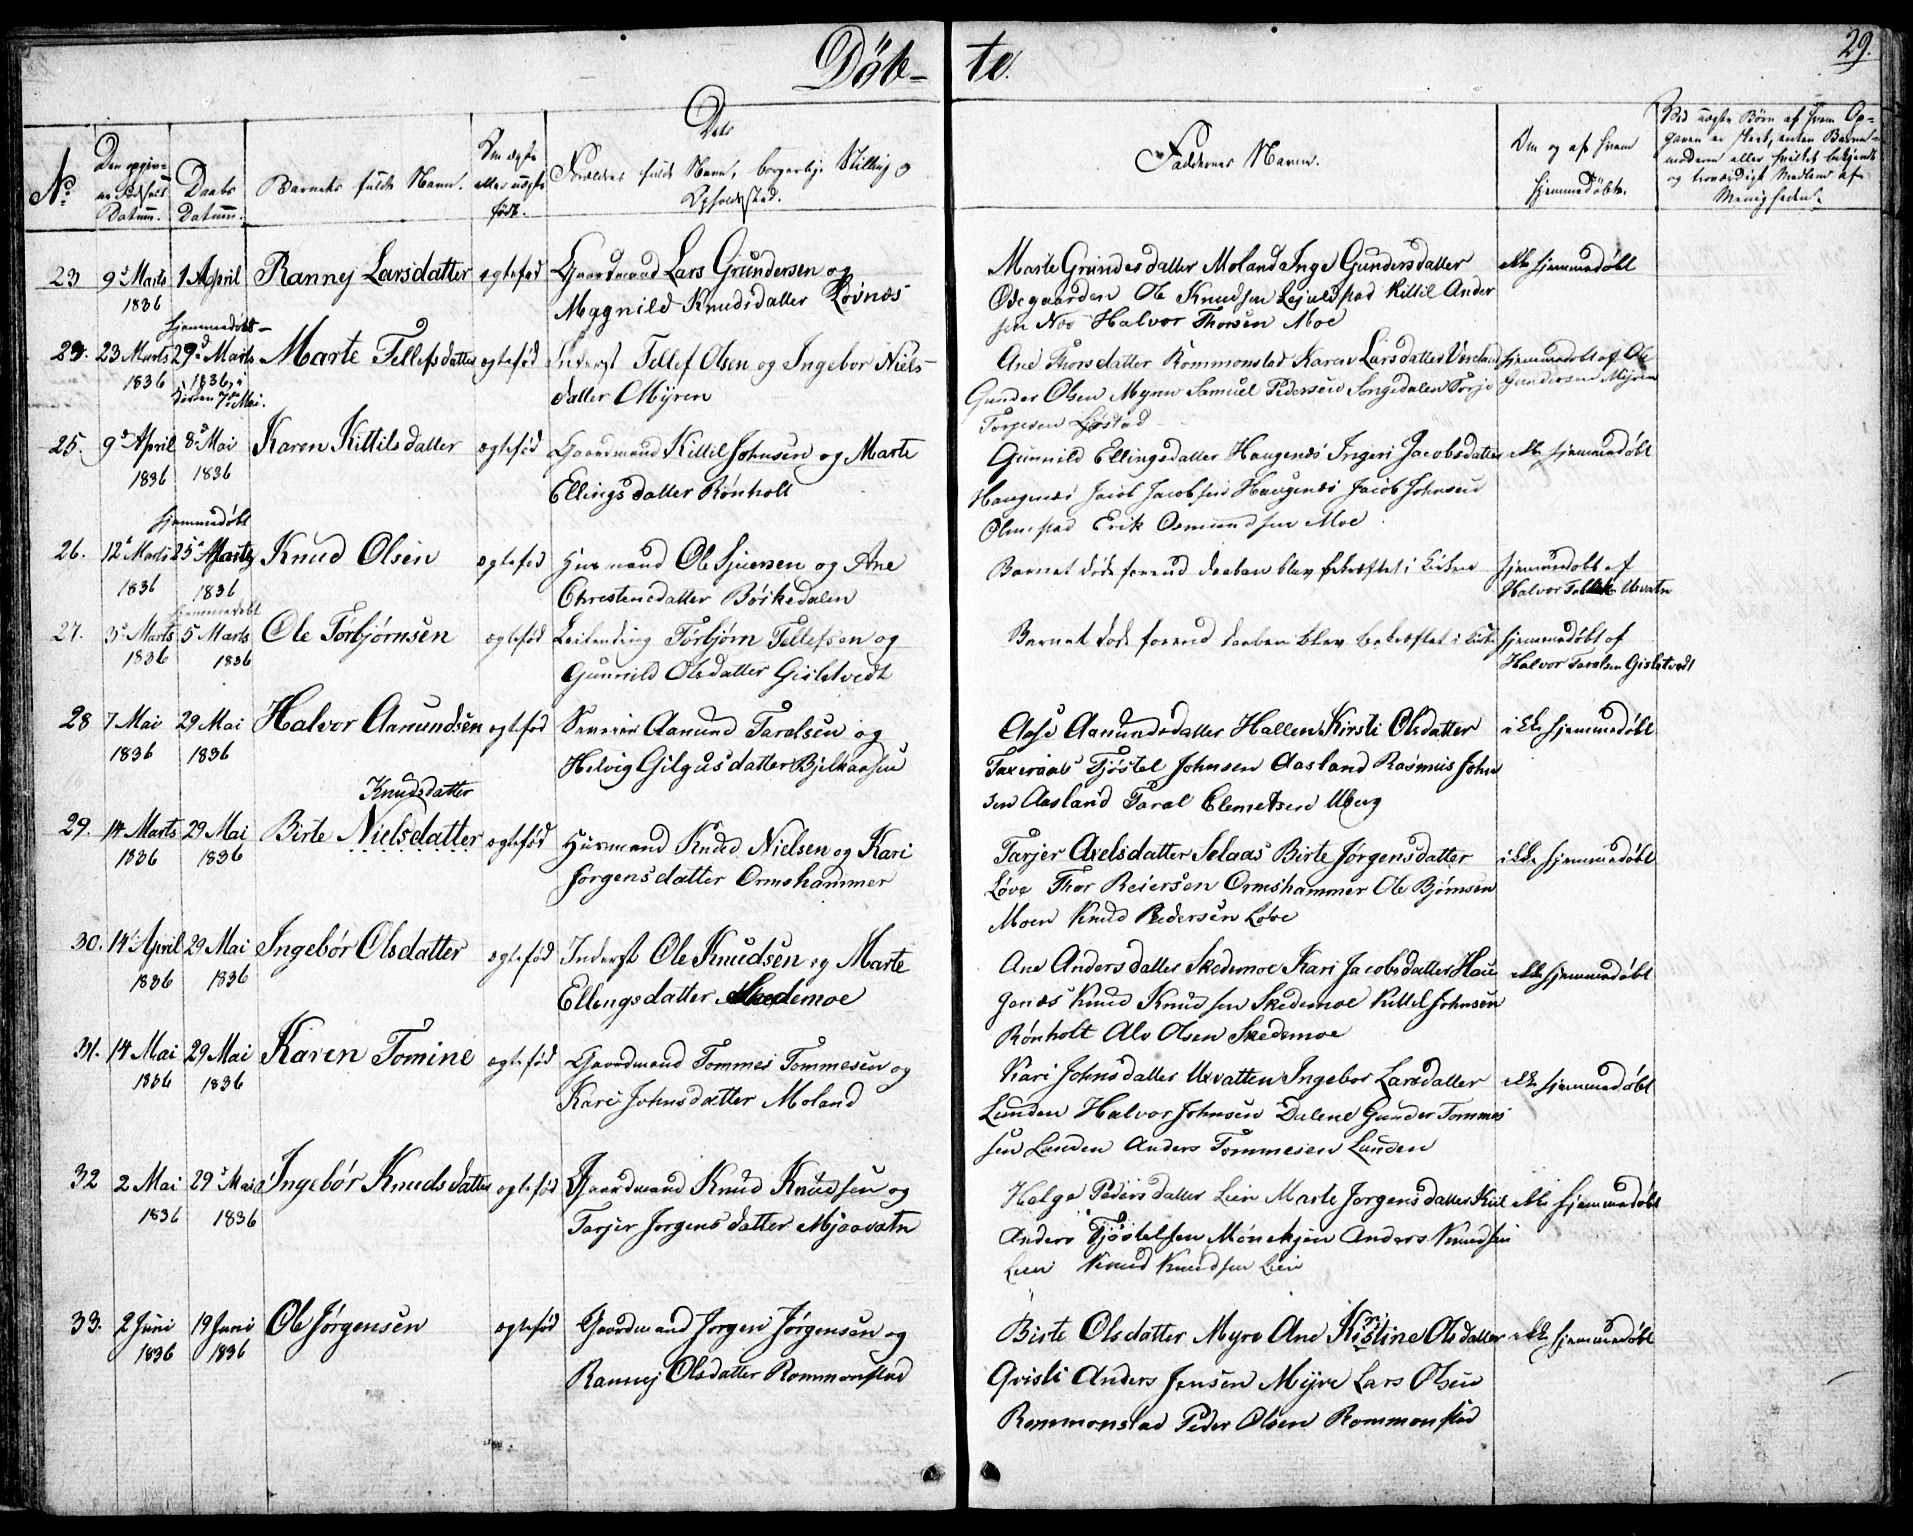 Døb-
te.
29.
No.
Den opgivne Fødsels Datum.
Daabs Datum.
Barnets fulde Navn.
Om ægte eller uægte født.
Dets
Forældres fulde Navn, borgerlige Stilling og
Opholdssted.
Faddernes Navne.
Om og af hvem
hjemmedøbt.
Ved uægte Børn af hvem Op-
gaven er skeet, enten Barne-
moderen eller hvilket bekjendt
og troværdigt Medlem af
Menigheden.
23 9d Marts 1836 1 April Ranney Larsdatter ægtefød Gaardmand Lars Grundersen og
Magnild Knudsdatter Lovnæs
Marte Grundesdatter Moland Inge Gundersdatter
Odegaarden Ole Knudsen Kittil Ander
sen Noo Halvor Thorsen Moe
ikke hjemmedøbt
24. 23 Marts 1836 hjemmedøbt 29d Marts 1836 7de Mai. Marte Tellefsdatter ægtefød Inderst Tellef Olsen og Ingebor Niels-
datter Myren
Ane Thorsdatter Rommonstad Karen Larsdatter
Gunder Olsen Myren Samuel Pedersen Songedalen Torje
Torjesen Løstad
hjemmedøbt af Ole
Gundersen Mýren
25. 9d April 1836 8d Mai 1836 Karen Kittilsdatter ægtefød Gaardmand Kittil Johnsen og Marte
Ellingsdatter Rønholt
Gunnild Ellingsdatter Haugenæs Ingeri Jacobsdatter
Haugenæs Jacob Jacobsen Haugenæs Jacob Johnsen
Olmstad Erik Osmundsen Moe
ikke hjemmedøbt
26. 12d Marts 1836 hjemmedøbt 25d Marts 1836 Knud Olsen ægtefød Husmand Ole Sjuersen og Ane
Christensdatter Bøikedalen
Barnet døde forend daaben blev bekræftet i Kirken
hjemmedøbt af
Halvor Usvatn
27. 3d Marts 1836 hjemmedøbt 5 Marts 1836 Ole Torbjørnsen ægtefød Leilending Torbjørn Tellefsen og
Gunnild Olsdatter Gislstvedt
Barnet døde forend daaben blev bekræftet i
hjemmedøbt af
Halvor Taralsen Gislstvedt
28 7 Mai 1836 29 Mai 1836 Halvor Aanundsen ægtefød Aanund Taralsen og
Helvig Gilgusdatter
Aase Aanundsdatter Hallen Kirsti Olsdatter
Taxeraas Tjøstel Johnsen Aasland Rasmus John
sen Aasland Taral Clemetsen Uberg
ikke hjemmedøbt
29. 14 Marts 1836 29 Mai 1836 Knudsdatter
Birte Nielsdatter ægtefød Husmand Knud Nielsen og Kari
Jørgensdatter Ormshammer
Tarjer Axelsdatter Selaas Birte Jørgensdatter
Løve Thor Reiersen Ormshammer Ole Bjørnsen
Moen Knud Pedersen Løve
ikke hjemmedøbt
30. 14d April 1836 29 Mai 1836 Ingebor Olsdatter ægtefød Inderst Ole Knudsen og Marte
Ellengsdatter Skedemoe
Ane Andersdatter Skedemoe Kari Jacobsdatter Hau
genæs Knud Knudsen Skedemoe Kittel Johnsen
Rønholt Alv Olsen Skedemoe
ikke hjemmedøbt
31. 14 Mai 1836 29 Mai 1836 Karen Tomine ægtefød Gaardmand Tommes Tommesen og
Kari Johnsdatter Moland
Kari Johnsdatter Usvatten Ingebor Larsdatter
Lunden Halvor Johnsen Dalene Gunder Tommes
sen Lunden Anders Tommesen Lunden
ikke hjemmedøbt
32 2 Mai 1836 29d Mai 1836 Ingebor Knudsdatter ægtefød Gaardmand Knud Knudsen og
Tarjer Jorgensdatter Mjaavatn
Helge Pedersdatter Lien Marte Jorgensdatter Kiil
Anders Tjøstelsen Mönekjen Anders Knudsen
Lien Knud Knudsen Lien
ikke hjemmedøbt
33. 2 Juni 1836 19 Juni 1836 Ole Jørgensen ægtefød Gaardmand Jorgen Jørgensen og
Ranney Olsdatter Rommonstad
Birte Olsdatter Myre Ane Kistine Olsdatter
Qvisli Anders Jensen Mijre Lars Olsen
Rommonstad Peder Olsen Rommonstad
ikke hjemmedøbt